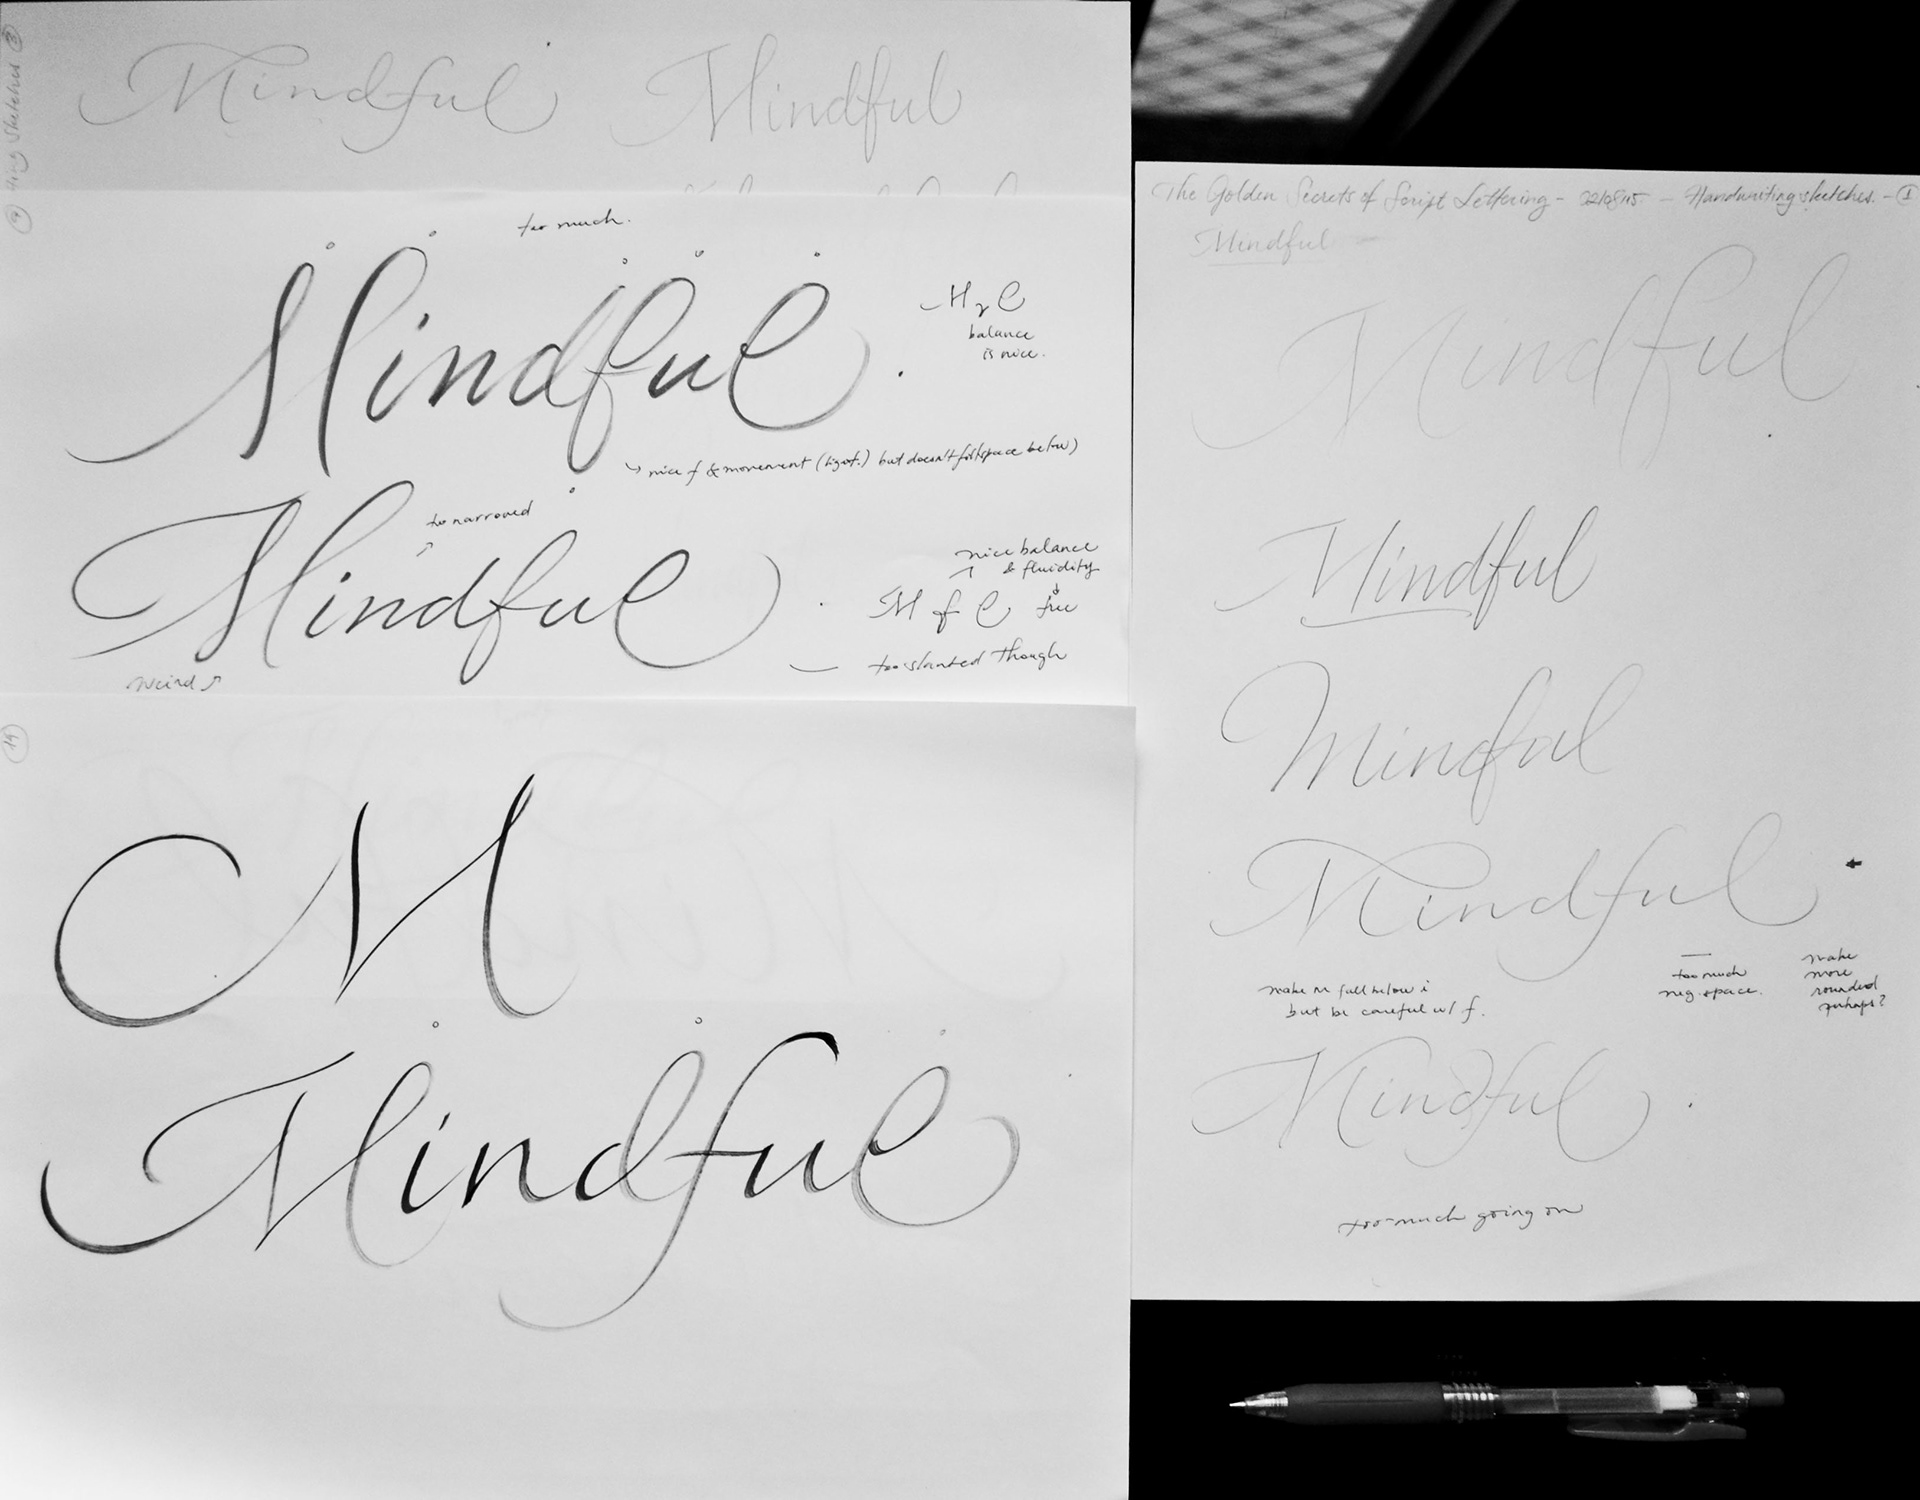 ting Sketches 3
Mindful Mindful
4
too much.
Mindful
M, l
balance
is nice.
nice f & movement (ligat.) but doesn't fit space below)
too narrowed
Mindful
nice balance
& fluidity
M f l ful
too slanted though
weird
14
M
Mindful
The Golden Secrets of Script Lettering - 22/08/15 - Handwriting sketches. - 1
Mindful
Mindful
Mindful
Mindful
Mindful
make m fall below i
but be careful w/ f.
too much
neg. space.
make
more
rounded
perhaps?
Mindful
too much going on